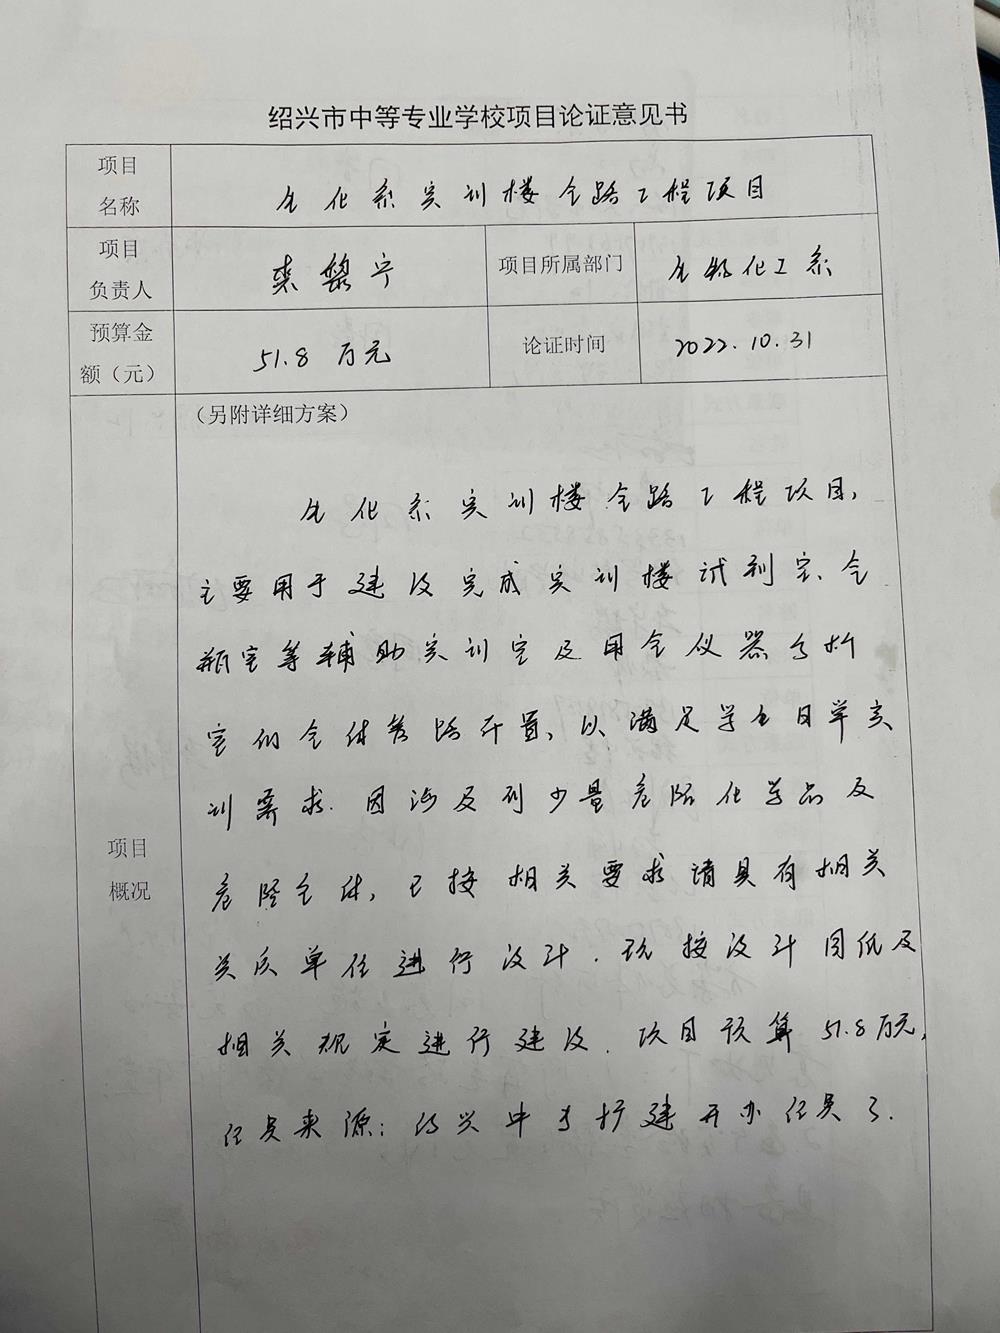 绍兴市中等专业学校项目论证意见书
项目
名称
生化系实训楼气路工程项目
项目
负责人
裘黎宁
项目所属部门
生物化工系
预算金
额（元）
51.8 万元
论证时间
2022.10.31
（另附详细方案）
生化系实训楼气路工程项目,
主要用于建设完成实训楼试剂室、气
瓶室等辅助实训室及用气仪器分析
室的气体管路布置, 以满足学生日常实
训需求. 因涉及到少量危险化学品及
危险气体, 已按相关要求请具有相关
资质单位进行设计. 现按设计图纸及
相关规定进行建设. 项目预算 51.8万元,
经费来源: 绍兴中专扩建开办经费
项目
概况